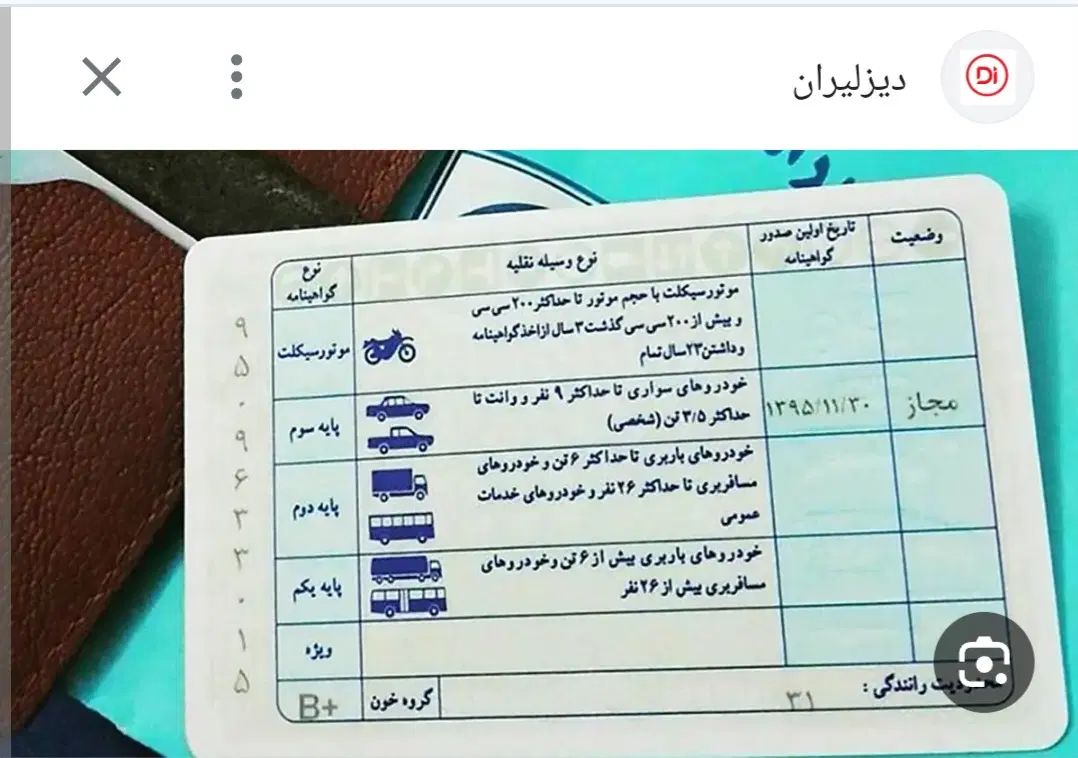 دیزلیران
Di
نوع گواهینامه
نوع وسیله نقلیه
تاریخ اولین صدور گواهینامه
وضعیت
موتورسیکلت
موتورسیکلت با حجم موتور تا حداکثر ۲۰۰ سی سی
و بیش از ۲۰۰ سی سی گذشت ۳ سال ازاخذ گواهینامه
و داشتن ۲۳ سال تمام
پایه سوم
خودروهای سواری تا حداکثر ۹ نفر و وانت تا
حداکثر ۳/۵ تن (شخصی)
۱۳۹۵/۱۱/۳۰
مجاز
پایه دوم
خودروهای باربری تا حداکثر ۶ تن و خودروهای
مسافربری تا حداکثر ۲۶ نفر و خودروهای خدمات
عمومی
پایه یکم
خودروهای باربری بیش از ۶ تن وخودروهای
مسافربری بیش از ۲۶ نفر
ویژه
گروه خون
B+
محدودیت رانندگی :
۳۱
۹
۵
۰
۹
۶
۳
۳
۰
۱
۵